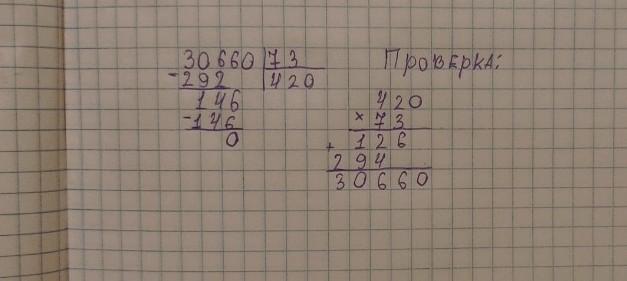 30660|73
-292 |420
146
-146
0
Проверка:
420
× 73
+ 126
294
30660